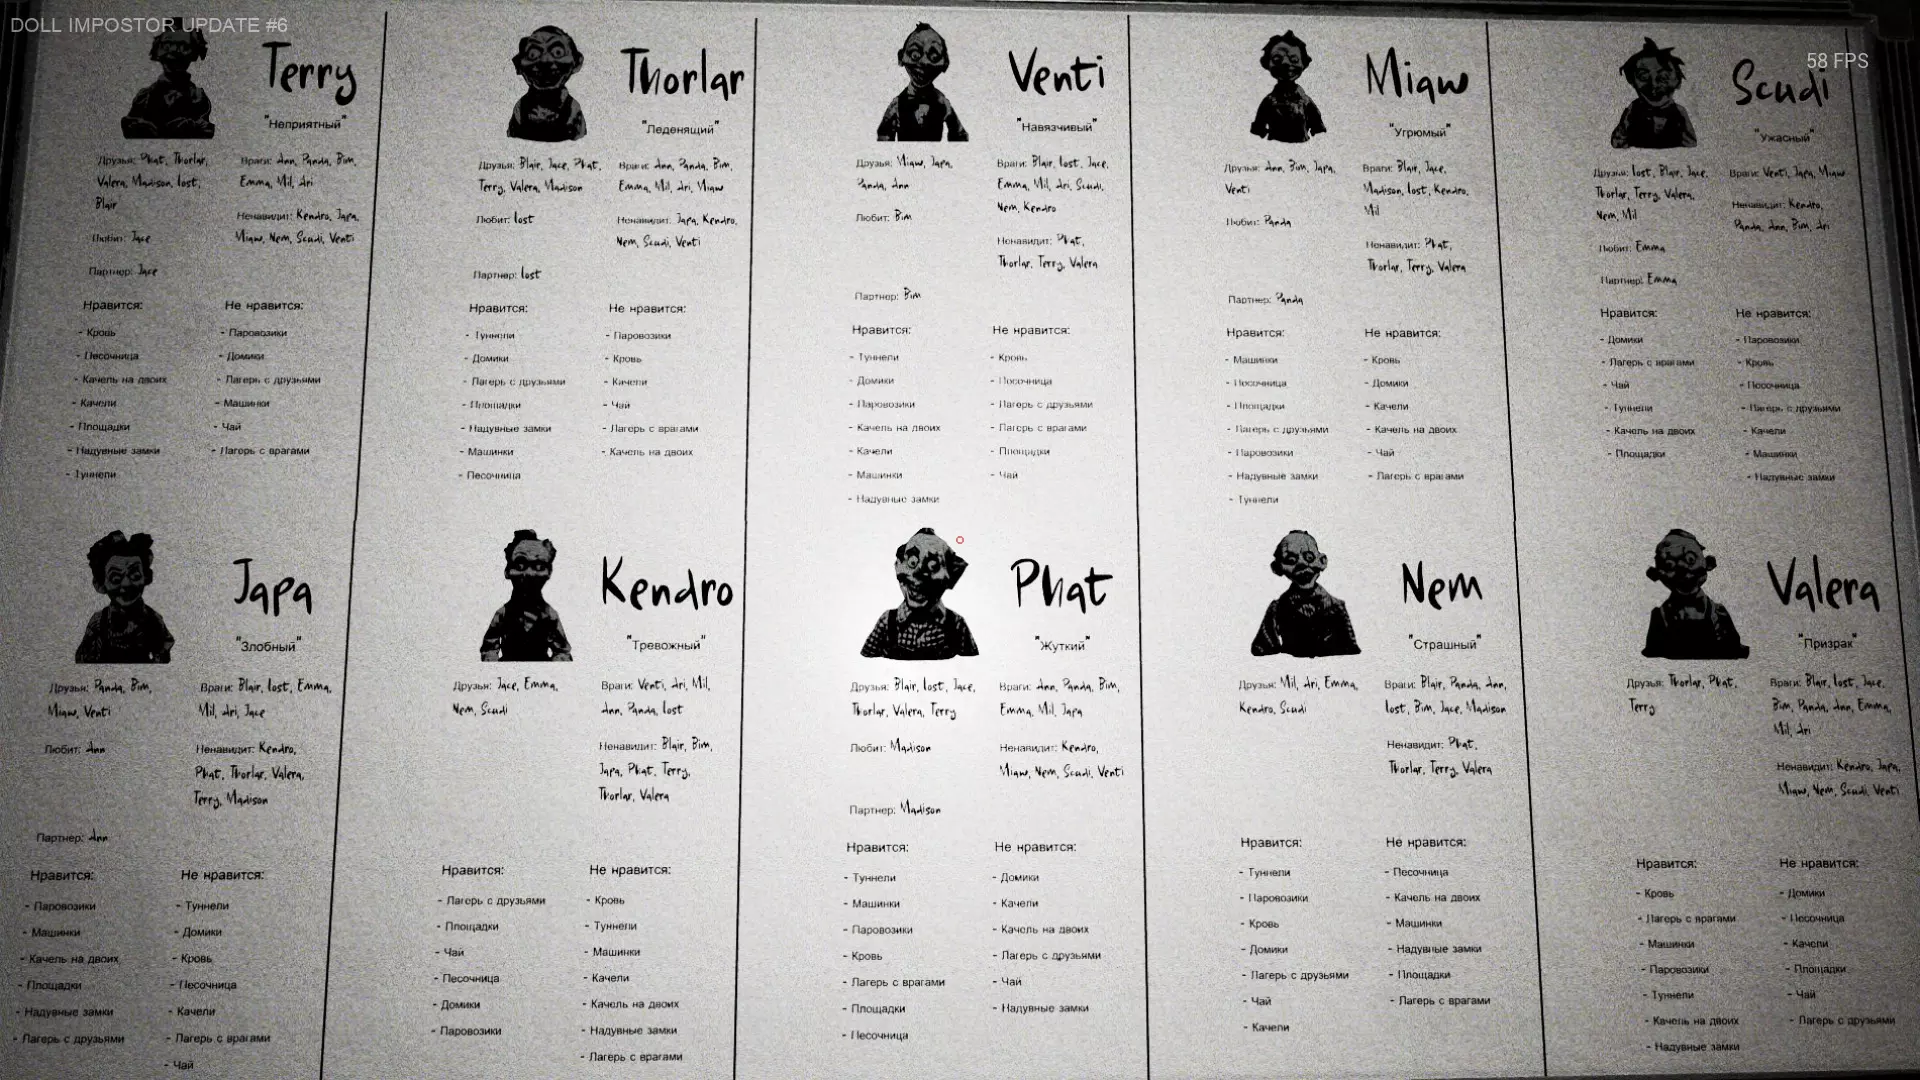 DOLL IMPOSTOR UPDATE #6
58 FPS
Terry
"Неприятный"
Друзья: Phat, Thorlar,
Valera, Madison, Lost,
Blair
Любит: Jace
Партнер: Jace
Враги: Ann, Panda, Bim,
Emma, Mil, Ari
Ненавидит: Kendro, Japa,
Miaw, Nem, Scudi, Venti
Нравится:
- Кровь
- Песочница
- Качель на двоих
- Качели
- Площадки
- Надувные замки
- Туннели
Не нравится:
- Паровозики
- Домики
- Лагерь с друзьями
- Машинки
- Чай
- Лагерь с врагами
Thorlar
"Леденящий"
Друзья: Blair, Jace, Phat,
Terry, Valera, Madison
Любит: Lost
Партнер: Lost
Враги: Ann, Panda, Bim,
Emma, Mil, Ari, Miaw
Ненавидит: Japa, Kendro,
Nem, Scudi, Venti
Нравится:
- Туннели
- Домики
- Лагерь с друзьями
- Площадки
- Надувные замки
- Машинки
- Песочница
Не нравится:
- Паровозики
- Кровь
- Качели
- Чай
- Лагерь с врагами
- Качель на двоих
Venti
"Навязчивый"
Друзья: Miaw, Japa,
Panda, Ann
Любит: Bim
Партнер: Bim
Враги: Blair, Lost, Jace,
Emma, Mil, Ari, Scudi,
Nem, Kendro
Ненавидит: Phat,
Thorlar, Terry, Valera
Нравится:
- Туннели
- Домики
- Паровозики
- Качель на двоих
- Качели
- Машинки
- Надувные замки
Не нравится:
- Кровь
- Песочница
- Лагерь с друзьями
- Лагерь с врагами
- Площадки
- Чай
Miaw
"Угрюмый"
Друзья: Ann, Bim, Japa,
Venti
Любит: Panda
Партнер: Panda
Враги: Blair, Jace,
Madison, Lost, Kendro,
Mil
Ненавидит: Phat,
Thorlar, Terry, Valera
Нравится:
- Машинки
- Песочница
- Площадки
- Лагерь с друзьями
- Паровозики
- Надувные замки
- Туннели
Не нравится:
- Кровь
- Домики
- Качели
- Качель на двоих
- Чай
- Лагерь с врагами
Scudi
"Ужасный"
Друзья: Lost, Blair, Jace,
Thorlar, Terry, Valera,
Nem, Mil
Любит: Emma
Партнер: Emma
Враги: Venti, Japa, Miaw
Ненавидит: Kendro,
Panda, Ann, Bim, Ari
Нравится:
- Домики
- Лагерь с врагами
- Чай
- Туннели
- Качель на двоих
- Площадки
Не нравится:
- Паровозики
- Кровь
- Песочница
- Лагерь с друзьями
- Качели
- Машинки
- Надувные замки
Japa
"Злобный"
Друзья: Panda, Bim,
Miaw, Venti
Любит: Ann
Партнер: Ann
Враги: Blair, Lost, Emma,
Mil, Ari, Jace
Ненавидит: Kendro,
Phat, Thorlar, Valera,
Terry, Madison
Нравится:
- Паровозики
- Машинки
- Качель на двоих
- Площадки
- Надувные замки
- Лагерь с друзьями
Не нравится:
- Туннели
- Домики
- Кровь
- Песочница
- Качели
- Лагерь с врагами
- Чай
Kendro
"Тревожный"
Друзья: Jace, Emma,
Nem, Scudi
Враги: Venti, Ari, Mil,
Ann, Panda, Lost
Ненавидит: Blair, Bim,
Japa, Phat, Terry,
Thorlar, Valera
Нравится:
- Лагерь с друзьями
- Площадки
- Чай
- Песочница
- Домики
- Паровозики
Не нравится:
- Кровь
- Туннели
- Машинки
- Качели
- Качель на двоих
- Надувные замки
- Лагерь с врагами
Phat
"Жуткий"
Друзья: Blair, Lost, Jace,
Thorlar, Valera, Terry
Любит: Madison
Партнер: Madison
Враги: Ann, Panda, Bim,
Emma, Mil, Japa
Ненавидит: Kendro,
Miaw, Nem, Scudi, Venti
Нравится:
- Туннели
- Машинки
- Паровозики
- Кровь
- Лагерь с врагами
- Площадки
- Песочница
Не нравится:
- Домики
- Качели
- Качель на двоих
- Лагерь с друзьями
- Чай
- Надувные замки
Nem
"Страшный"
Друзья: Mil, Ari, Emma,
Kendro, Scudi
Враги: Blair, Panda, Ann,
Lost, Bim, Jace, Madison
Ненавидит: Phat,
Thorlar, Terry, Valera
Нравится:
- Туннели
- Паровозики
- Кровь
- Домики
- Лагерь с друзьями
- Чай
- Качели
Не нравится:
- Песочница
- Качель на двоих
- Машинки
- Надувные замки
- Площадки
- Лагерь с врагами
Valera
"Призрак"
Друзья: Thorlar, Phat,
Terry
Враги: Blair, Lost, Jace,
Bim, Panda, Ann, Emma,
Mil, Ari
Ненавидит: Kendro, Japa,
Miaw, Nem, Scudi, Venti
Нравится:
- Кровь
- Лагерь с врагами
- Машинки
- Паровозики
- Туннели
- Качель на двоих
- Надувные замки
Не нравится:
- Домики
- Песочница
- Качели
- Площадки
- Чай
- Лагерь с друзьями